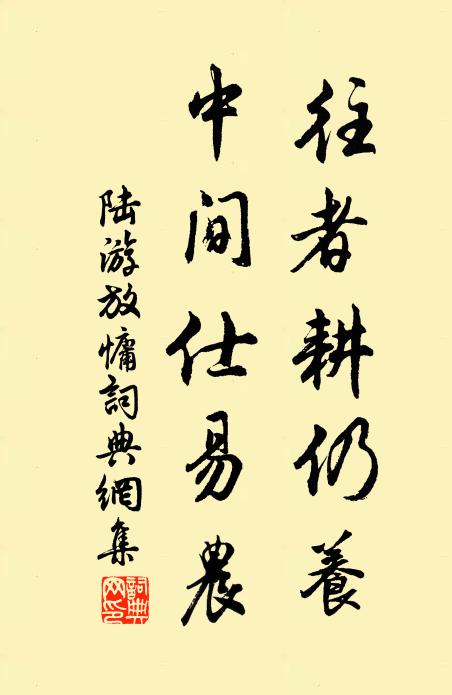 往者耕仍養
中間仕易農
陸游放慵詞典網集
詞典網印